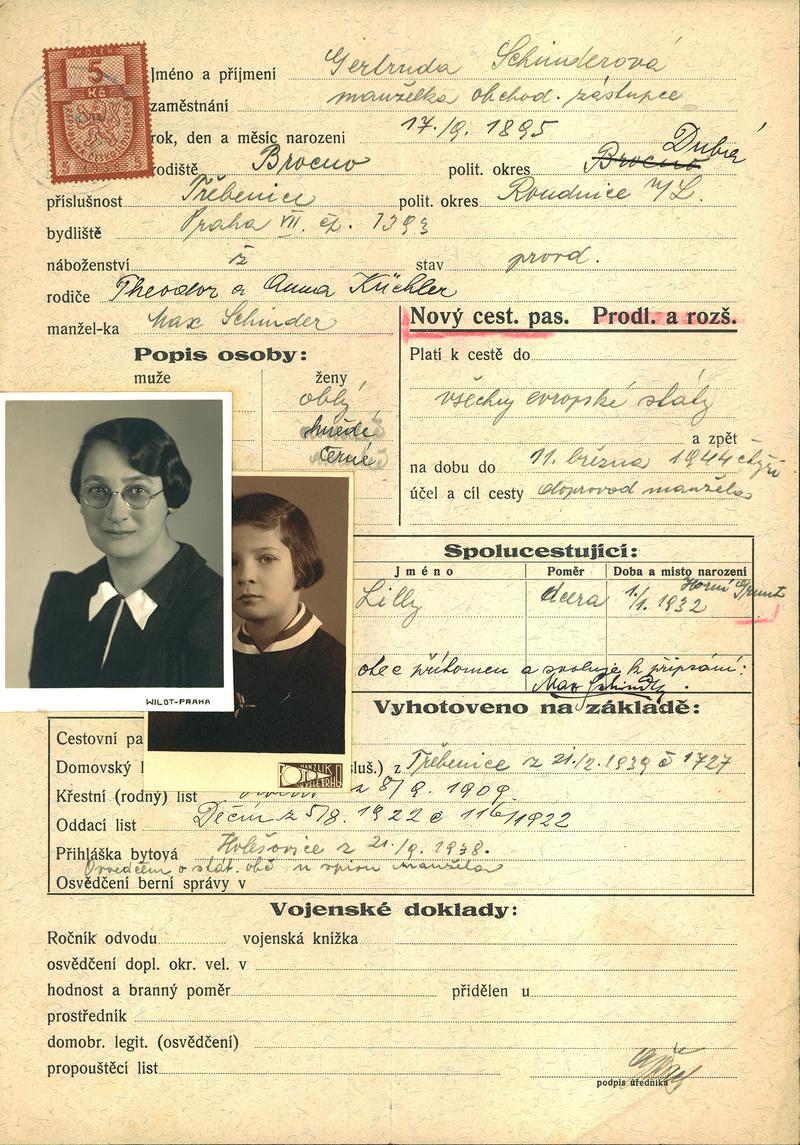 5
Kč
Jméno a příjmení Gertruda Schinderová
zaměstnání manželka obchod. zástupce
rok, den a měsíc narození 17./9. 1895
rodiště Brocno polit. okres Brocno Dubá
příslušnost Třebenice polit. okres Roudnice n/L.
bydliště Praha VII. čp. 1393
náboženství ž stav provd.
rodiče Theodor a Anna Küchler
manžel-ka Max Schinder
Nový cest. pas. Prodl. a rozš.
Popis osoby:
muže ženy
oblý
hnědé
černé
Platí k cestě do
všechny evropské státy
a zpět
na dobu do 11. března 1944 čtyři
účel a cíl cesty doprovod manžela
Spolucestující:
Jméno Poměr Doba a místo narození
Lilly dcera 1./1. 1932 Horní
otec přítomen a svoluje k připsání:
Max
WILDT-PRAHA
Vyhotoveno na základě:
Cestovní pa
Domovský l sluš.) z Třebenice z 21./2. 1939 č 1727
Křestní (rodný) list z 8/9. 1909
Oddací list Děčín z 5/8. 1922 č 116/1922
Přihláška bytová Holešovice z 21./9. 1938.
Osvědčení o stát. obč. u spisu manžela
Osvědčení berní správy v
Vojenské doklady:
Ročník odvodu vojenská knížka
osvědčení dopl. okr. vel. v
hodnost a branný poměr přidělen u
prostředník
domobr. legit. (osvědčení)
propouštěcí list
podpis úředníka